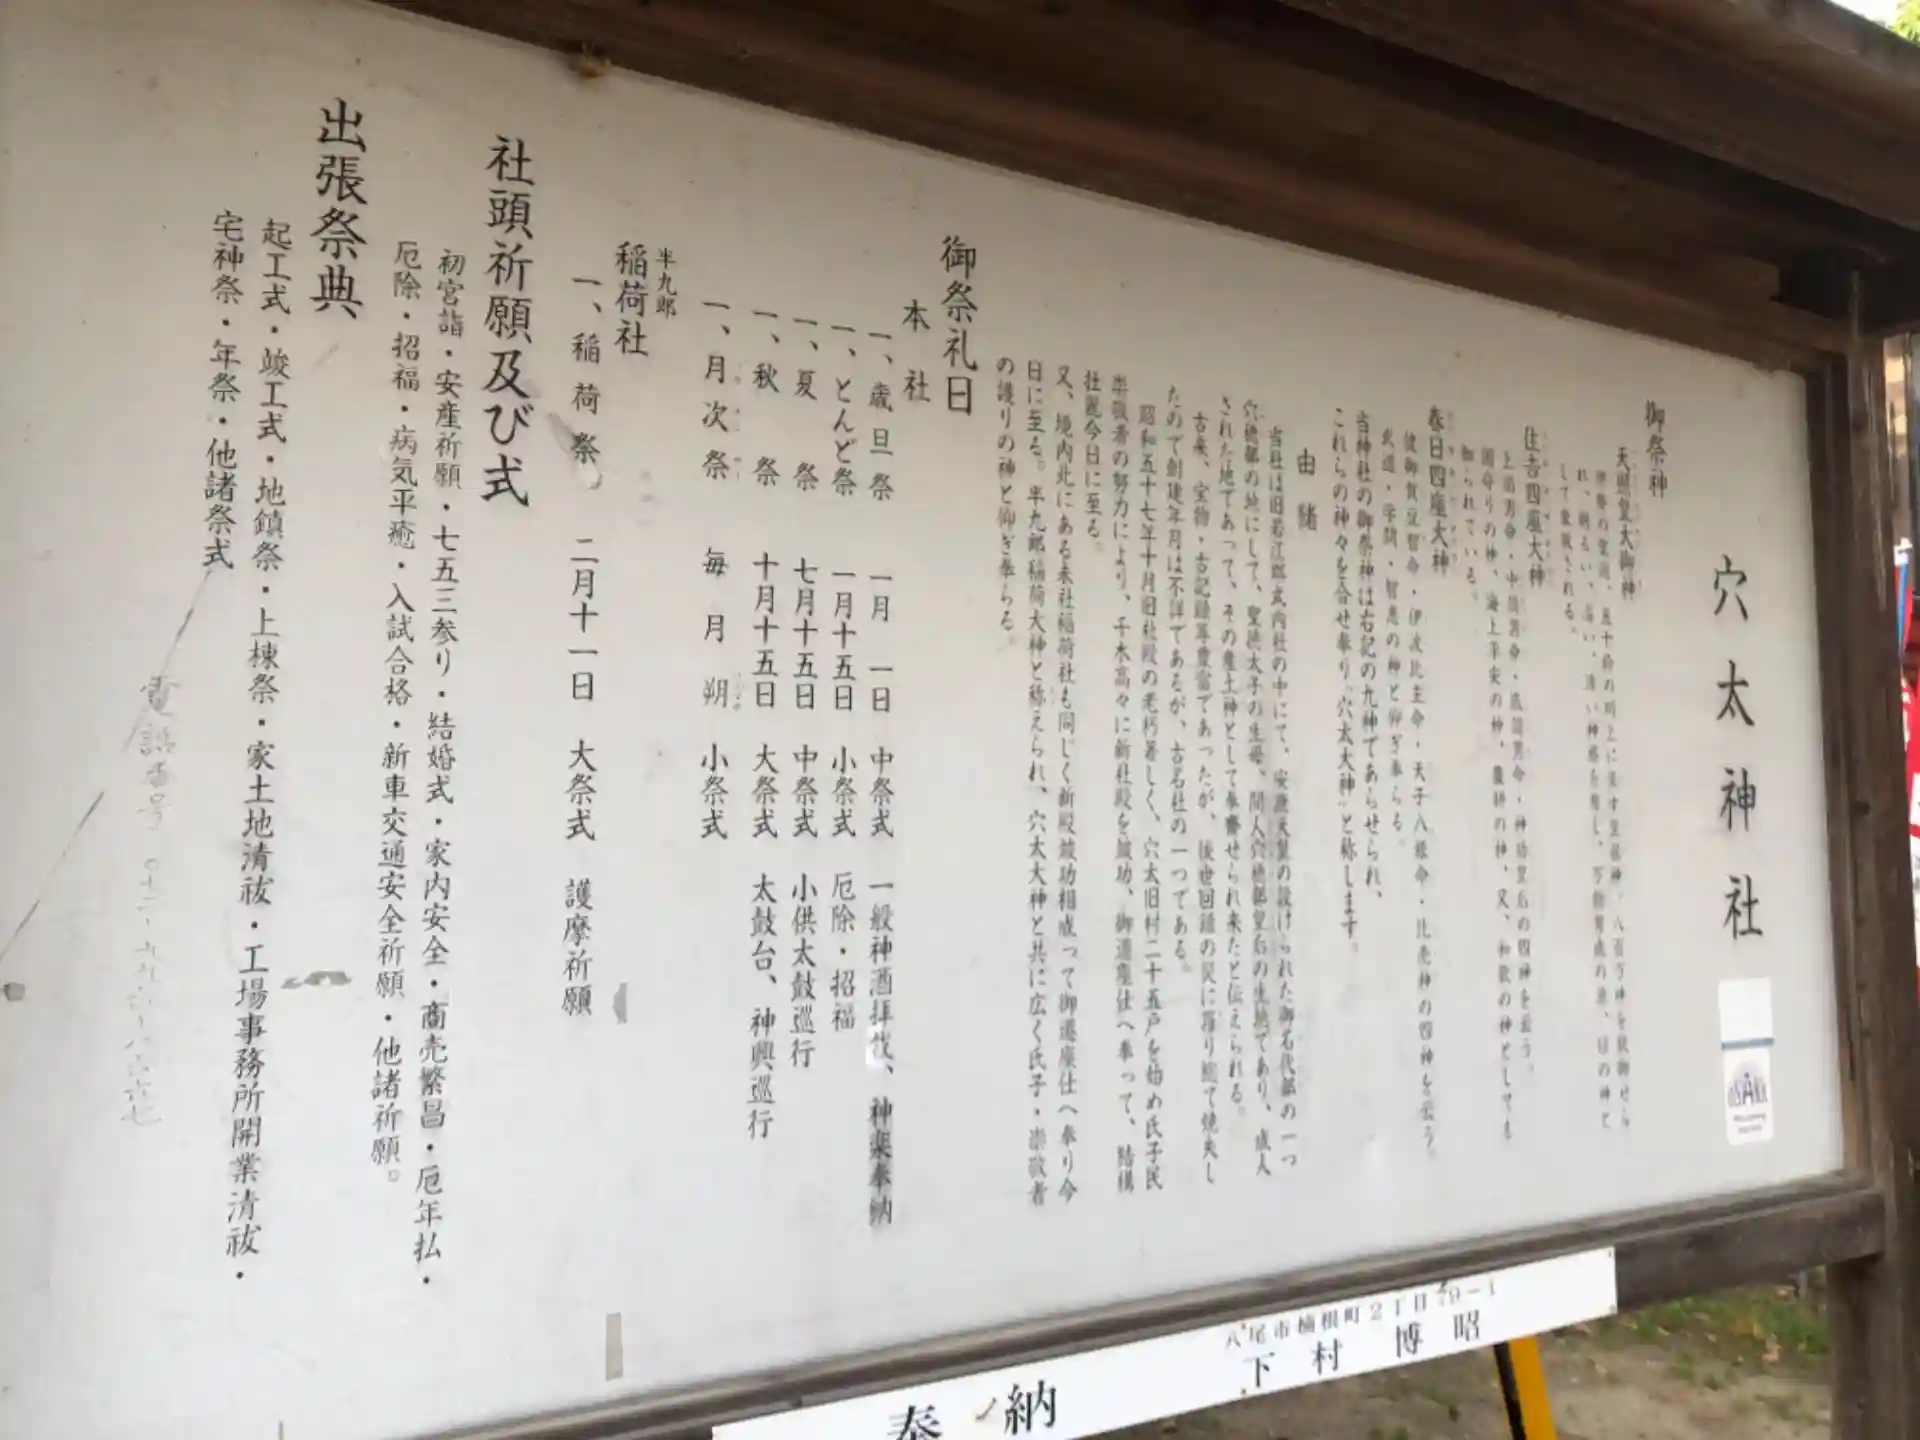 穴太神社
御祭神
天照皇大御神
して崇敬される。
住吉四座大神
御られている。
春日四座大神
武道・学問・智恵の神と仰ぎ奉らる。
当神社の御祭神は右記の九神であらせられ、
これらの神々を合せ奉り「穴太大神」と称します。
由緒
当社は旧若江郡式内社の中にて、安康天皇の設けられた御名代部の一つ
穴穂部の地にして、聖徳太子の生母、間人穴穂部皇后の生地であり、成人
された地であって、その産土神として奉齋せられ来たと伝えられる。
古来、宝物・古記録等豊富であったが、後世回録の災に罹り総て焼失し
たので創建年月は不詳であるが、古名社の一つである。
昭和五十七年十月旧社殿の老朽著しく、穴太旧村二十五戸を始め氏子民
崇敬者の努力により、千木高々に新社殿を竣功、御遷座仕へ奉って、結構
壮麗今日に至る。
又、境内北にある末社稲荷社も同じく新殿竣功相成って御遷座仕へ奉り今
日に至る。半九郎稲荷大神と称えられ、穴太大神と共に広く氏子・崇敬者
の護りの神と仰ぎ奉らる。
御祭礼日
本社
一、歳旦祭 一月一日 中祭式 一般神酒拝戴、神楽奉納
一、とんど祭 一月十五日 小祭式 厄除・招福
一、夏祭 七月十五日 中祭式 小供太鼓巡行
一、秋祭 十月十五日 大祭式 太鼓台、神輿巡行
一、月次祭 毎月朔 小祭式
半九郎
稲荷社
一、稲荷祭 二月十一日 大祭式 護摩祈願
社頭祈願及び式
初宮詣・安産祈願・七五三参り・結婚式・家内安全・商売繁昌・厄年払・
厄除・招福・病気平癒・入試合格・新車交通安全祈願・他諸祈願。
出張祭典
起工式・竣工式・地鎮祭・上棟祭・家土地清祓・工場事務所開業清祓・
宅神祭・年祭・他諸祭式
電話番号
OSAKA
八尾市楠根町2丁目79-1
下村博昭
奉納